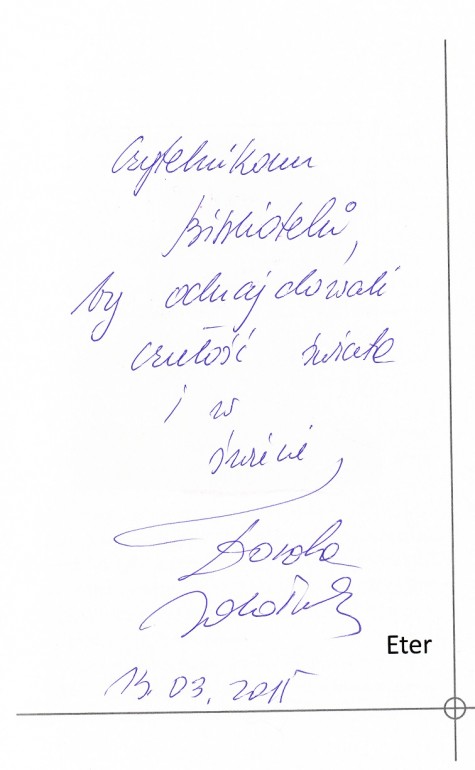 Czytelnikom
Biblioteki,
by odnajdowali
czułość świata
i w
świecie
Dorota
Eter
13.03.2015